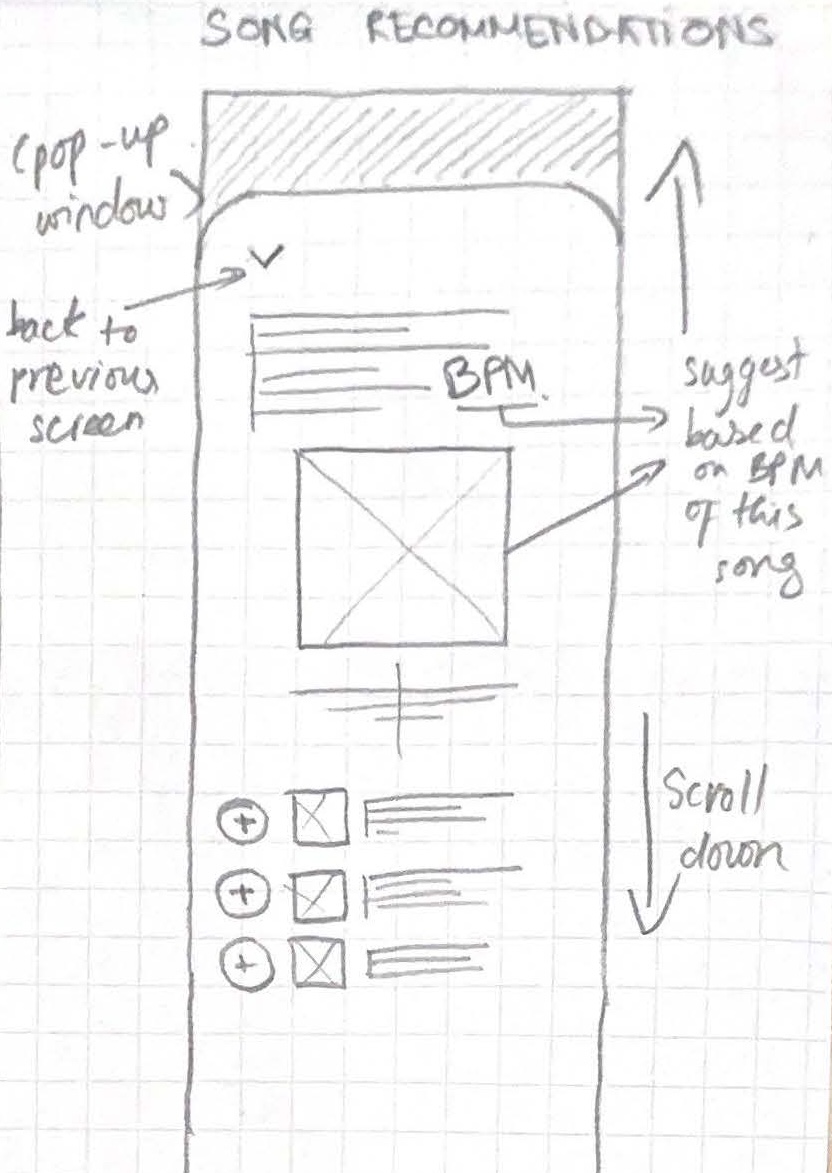 SONG RECOMMENDATIONS
(pop-up
window
back to
previous
screen
BPM.
suggest
based
on BPM
of this
song
Scroll
down